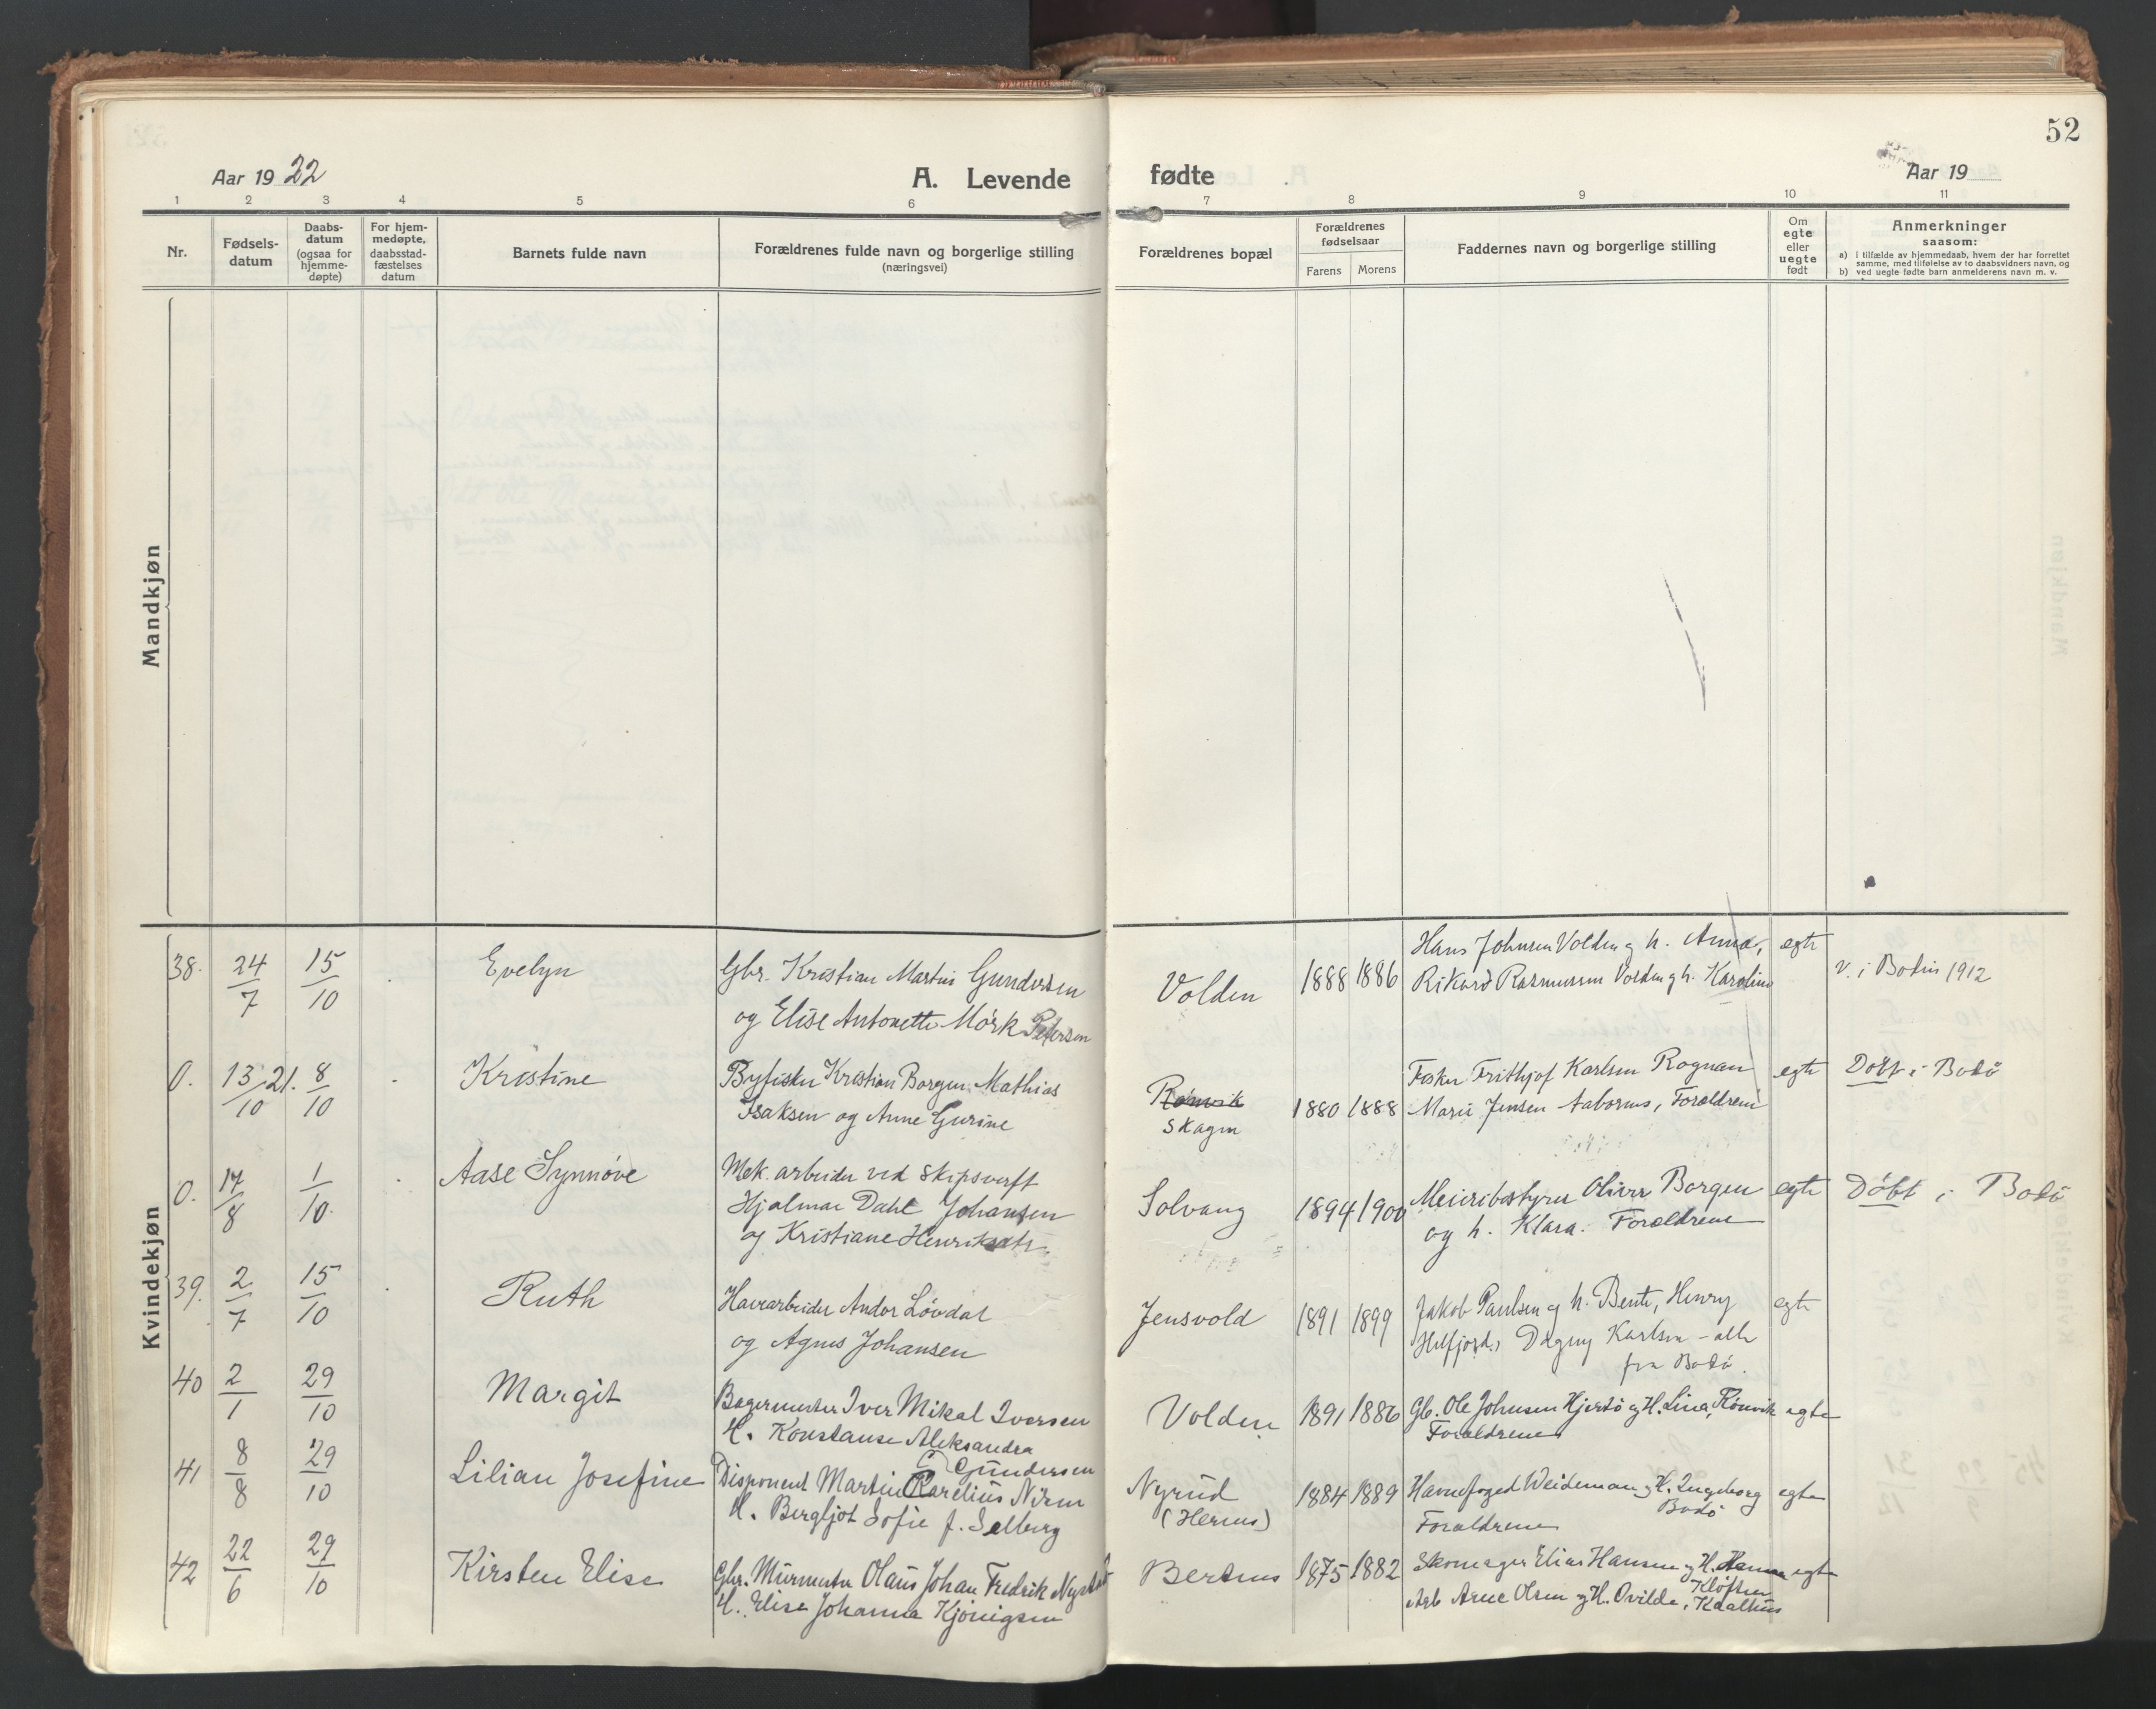 52
Aar 1922
A. Levende
fødte
Aar 19
1 2 3 4 5 6 7 8 9 10 11
Nr.
Fødsels-
datum
Daabs-
datum
(ogsaa for
hjemme-
døpte)
For hjem-
medøpte,
daabsstad-
fæstelses
datum
Barnets fulde navn
Forældrenes fulde navn og borgerlige stilling
(næringsvei)
Forældrenes bopæl
Forældrenes
fødselsaar
Farens Morens
Faddernes navn og borgerlige stilling
Om
egte
eller
uegte
født
Anmerkninger
saasom:
a) i tilfælde av hjemmedaab, hvem der har forrettet
samme, med tilføielse av to daabsvidners navn, og
b) ved uegte fødte barn anmelderens navn m. v.
Mandkjøn
Kvindekjøn
38. 24/7 15/10 Evelyn
Gbr. Kristian Martin Gundersen
og Elise Antonette Mørk Petersen
Volden 1888 1886
Hans Johnsen Volden og h. Anna,
Rikard Rasmussen Volden og h. Karoline
egte
v. i Bodin 1912
0. 13/10 21. 8/10 Kristine
Byfisker Kristian Borgen Mathias
Isaksen og Anne Gurine
Rønvik
Skagen
1880 1888
Fisker Frithjof Karlsen Rognan
Marie Jensen Forældrene
egte
Døbt i Bodø
0. 17/8 1/10 Aase Synnøve
Mek. arbeider ved Skipsverft
Hjalmar Dahl Johansen
og Kristiane Henriksdtr.
Solvang 1894 1900
Meieribestyrer Oliver Borgen
og h. Klara. Forældrene
egte
Døbt i Bodø
39. 2/7 15/10 Ruth
Havnearbeider Andor Løvdal
og Agnes Johansen
Jensvold 1891 1899
Jakob Paulsen og h. Bente, Henry
Dagny Karlsen - alle
fra Bodø.
egte
40 2/1 29/10 Margit
Bagermester Iver Mikal Iversen
H. Konstanse Aleksandra
Gundersen
Volden 1891 1886
Gb. Ole Johnsen Hjertø og H. Lina, Rønvik
Forældrene
egte
41 8/8 29/10 Lilian Josefine
Disponent Martin Karelius Nilsen
H. Bergljot Sofie f. Selberg
Nyrud
(Hernes)
1884 1889
Havnefoged Weideman og H. Ingeborg
Bodø
Forældrene
egte
42 22/6 29/10 Kirsten Elise
Gbr. Murmester Olaus Johan Fredrik Nystad
H. Elise Johanna Kjønigsen
Bertnes 1875 1882
Skomager Elias Hansen og H. Hanna
Kløften
Arb Arne Olsen og H. Ovilde,
egte